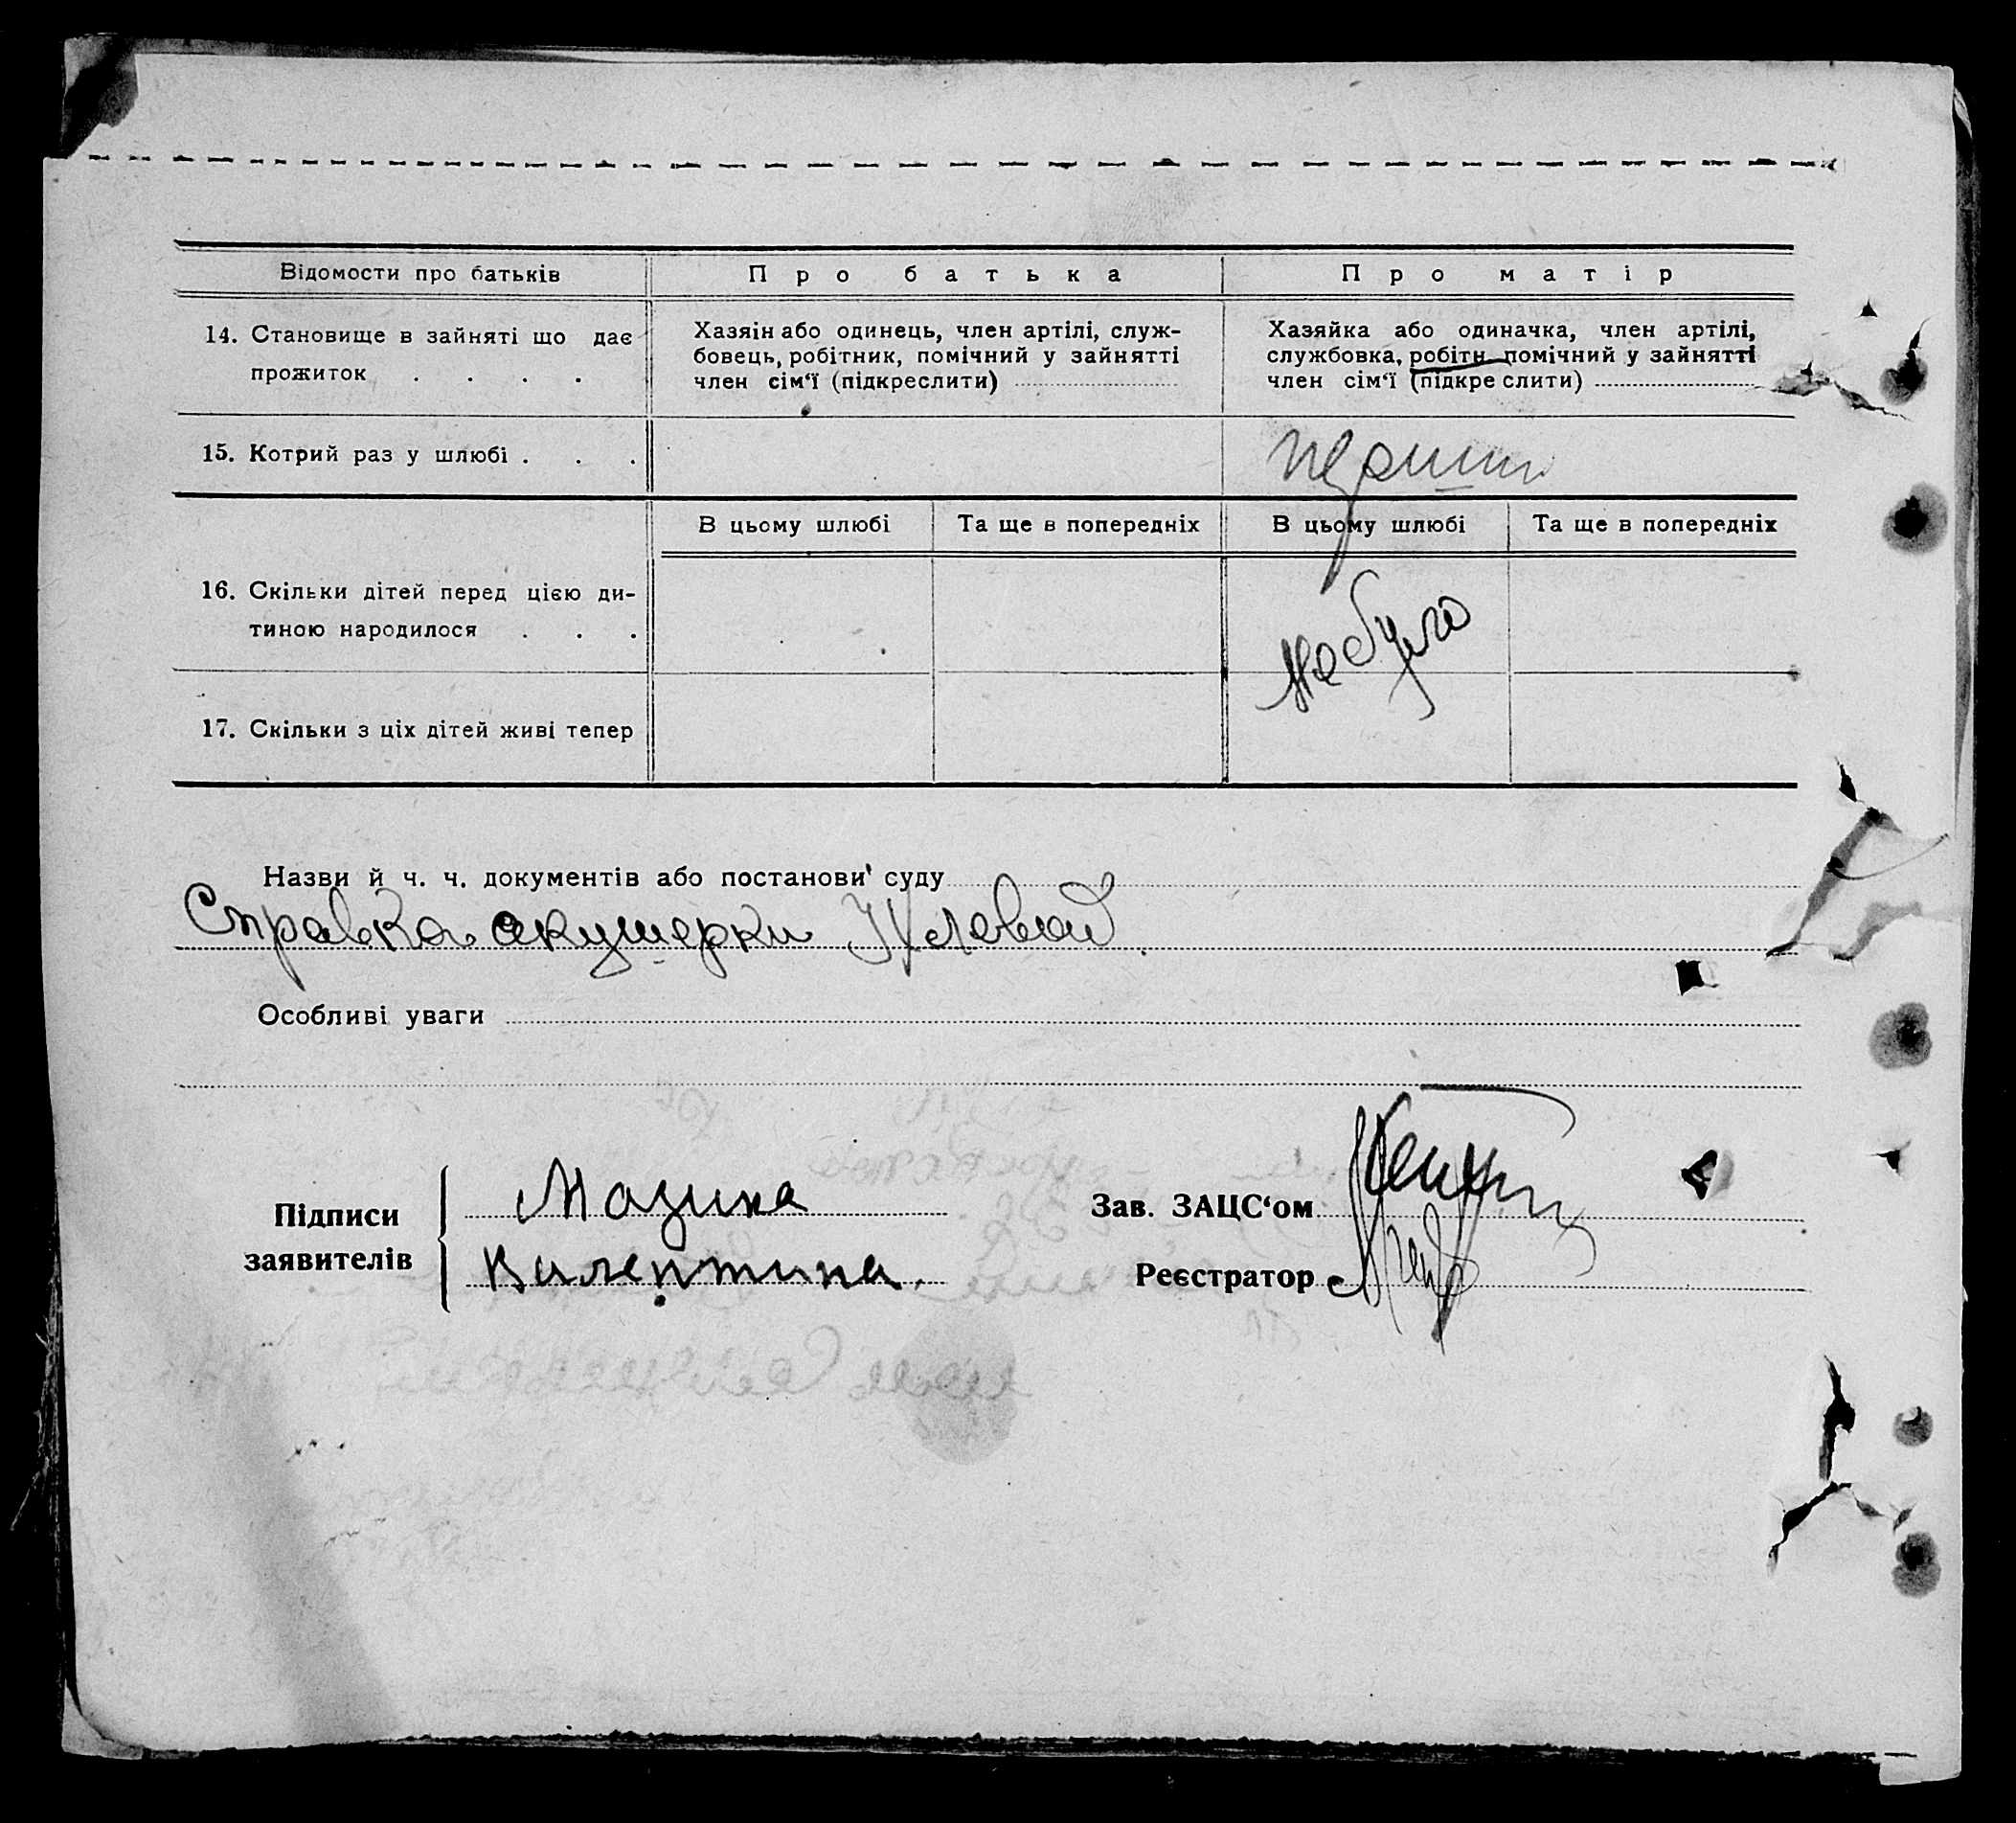 Відомости про батьків
Про батька
Про матір
14. Становище в зайняті що дає
прожиток . . . .
Хазяін або одинець, член артілі, служ-
бовець, робітник, помічний у зайнятті
член сім‘ї (підкреслити)
Хазяйка або одиначка, член артілі,
службовка, робітн помічний у зайнятті
член сім‘ї (підкре слити)
15. Котрий раз у шлюбі . . .
перший
В цьому шлюбі
Та ще в попередніх
В цьому шлюбі
Та ще в попередніх
16. Скільки дітей перед цією ди-
тиною народилося . . .
Не було
17. Скільки з ціх дітей живі тепер
Назви й ч. ч. документів або постанови суду
Справка акушерки
Особливі уваги
Підписи
заявителів
Мазина
Валентина.
Зав. ЗАЦС‘ом
Реєстратор